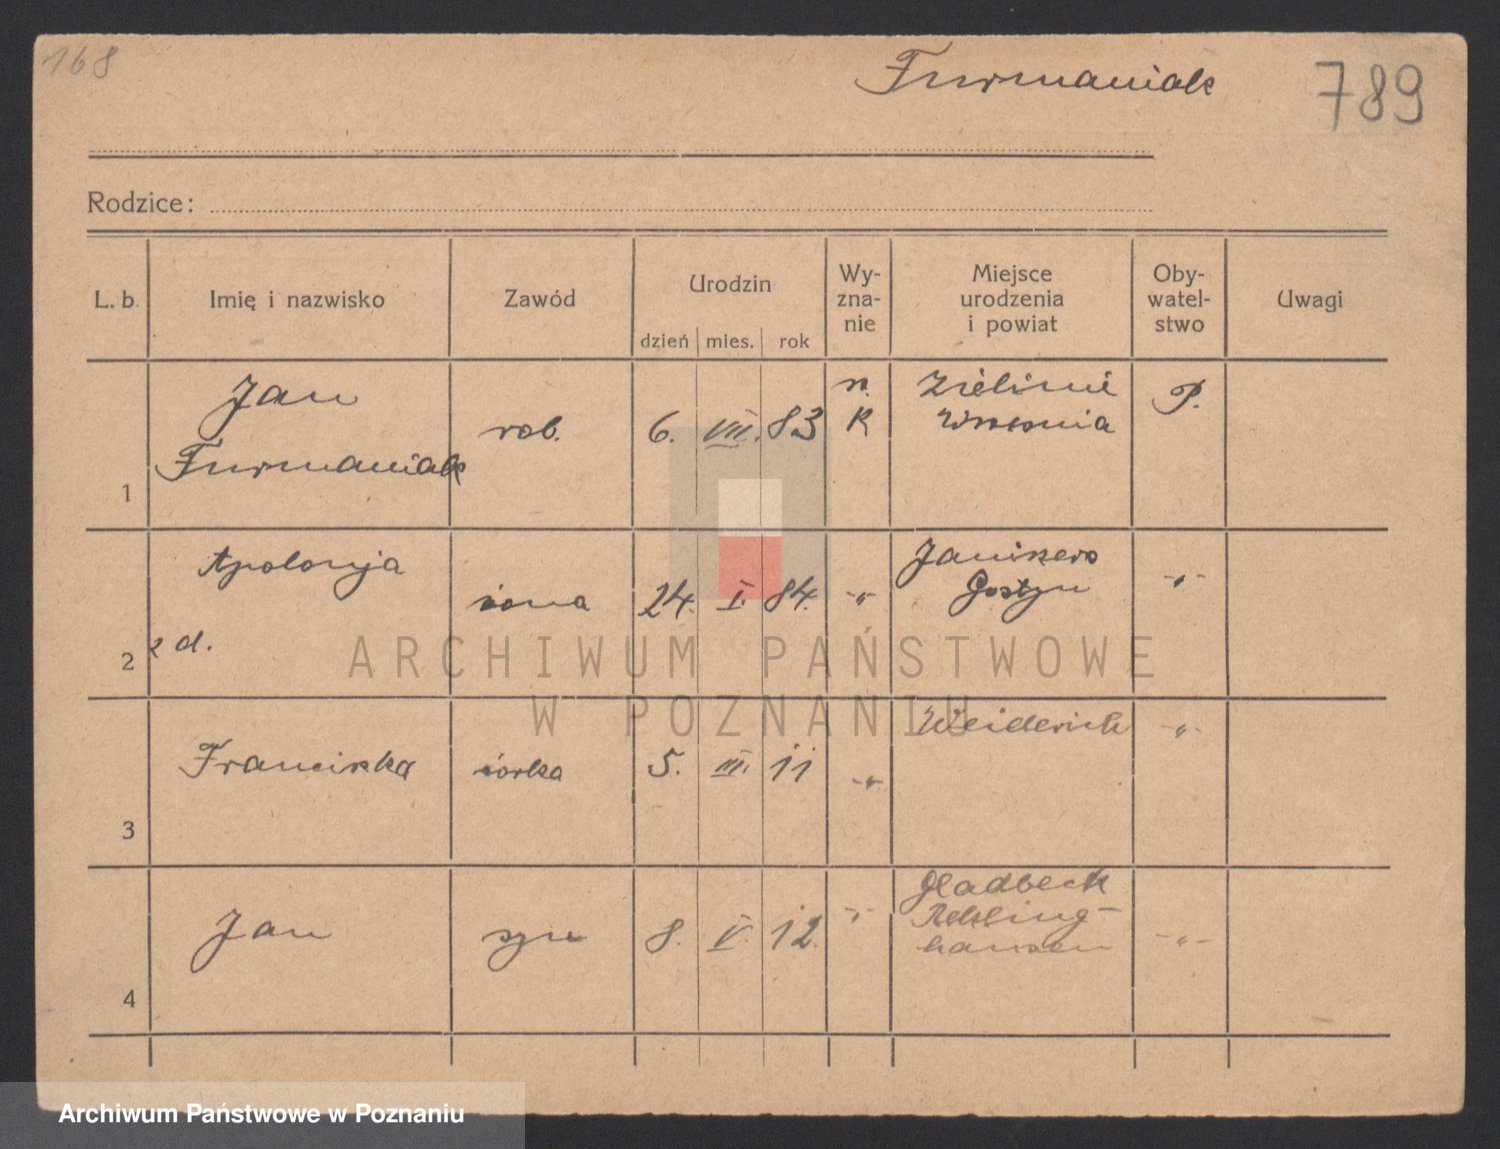 168
Furmaniak
789
Rodzice:
L. b.
Imię i nazwisko
Zawód
Urodzin
dzień
mies.
rok
Wy-
zna-
nie
Miejsce
urodzenia
i powiat
Oby-
watel-
stwo
Uwagi
1
Jan
Furmaniak
rob.
6. VII. 83
r.
K
Zieliniec
Września
P.
2
Apolonja
z d.
żona
24. I. 84.
-„-
Janiszewo
Gostyn
-„-
3
Franciszka
córka
5. III. 11
-„-
Meiderich
-„-
4
Jan
syn
8. V. 12.
-„-
Gladbeck
Rekling-
hausen
-„-
ARCHIWUM PAŃSTWOWE
W POZNANIU
Archiwum Państwowe w Poznaniu